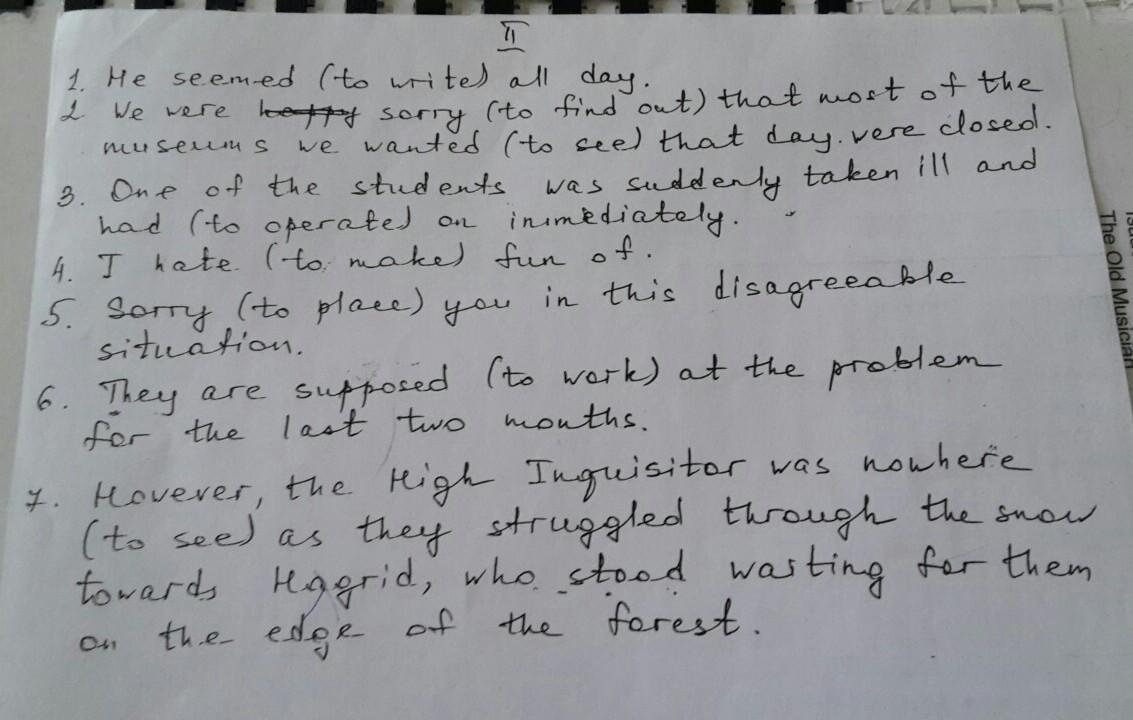 II
1. He seemed (to write) all day.
2 We were happy sorry (to find out) that most of the
museums we wanted (to see) that day. vere closed.
3. One of the students was suddenly taken ill and
had (to operate) on immediately.
4. I hate (to make) fun of.
5. Sorry (to place) you in this disagreeable
situation.
6. They are supposed (to work) at the problem
for the last two months.
7. Hovever, the High Inquisitor was nowhere
(to see) as they struggled through the snow
towards Hagrid, who stood waiting for them
on the edge of the forest.
The Old Musician